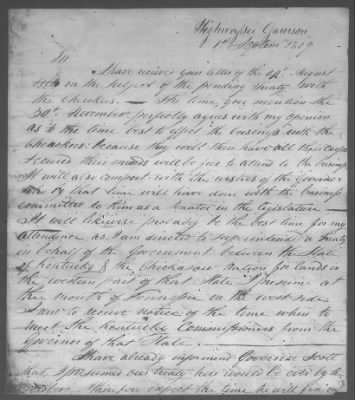 Highwassee Garrison
1st Septem 1809
Sir
I have received your letter of the 12th August
on the subject of the pending treaty with
the Cherokees. — The time you mention the
30th November perfectly agrees with my opinion
as to the time best to effect the business with the
Cherokees: because they will then have all their crops
secured their minds will be free to attend to the business
It will also comport with the wishes of the Governor
by that time will have done with the business
committed to him as a Senator in the legislature —
It will likewise probably be the best time for my
attendance as I am directed to superintend a treaty
in behalf of the Government between the State
of Kentucky & the Chickasaw Nation for lands in
the western part of that State I presume at
the mouth of Tennessee on the west side
I am to receive notice of the time when to
meet the Kentucky Commissioners from the
Governor of that State.
I have already informed Governor Scott
that I presumed our treaty here would be over by the
October. I therefore expect the time he will fix on